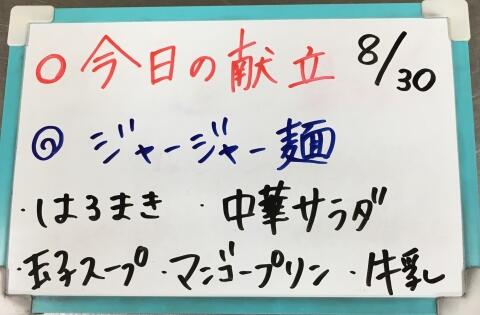 ○今日の献立 8/30
◎ ジャージャー麺
・はるまき ・中華サラダ
・玉子スープ ・マンゴープリン ・牛乳